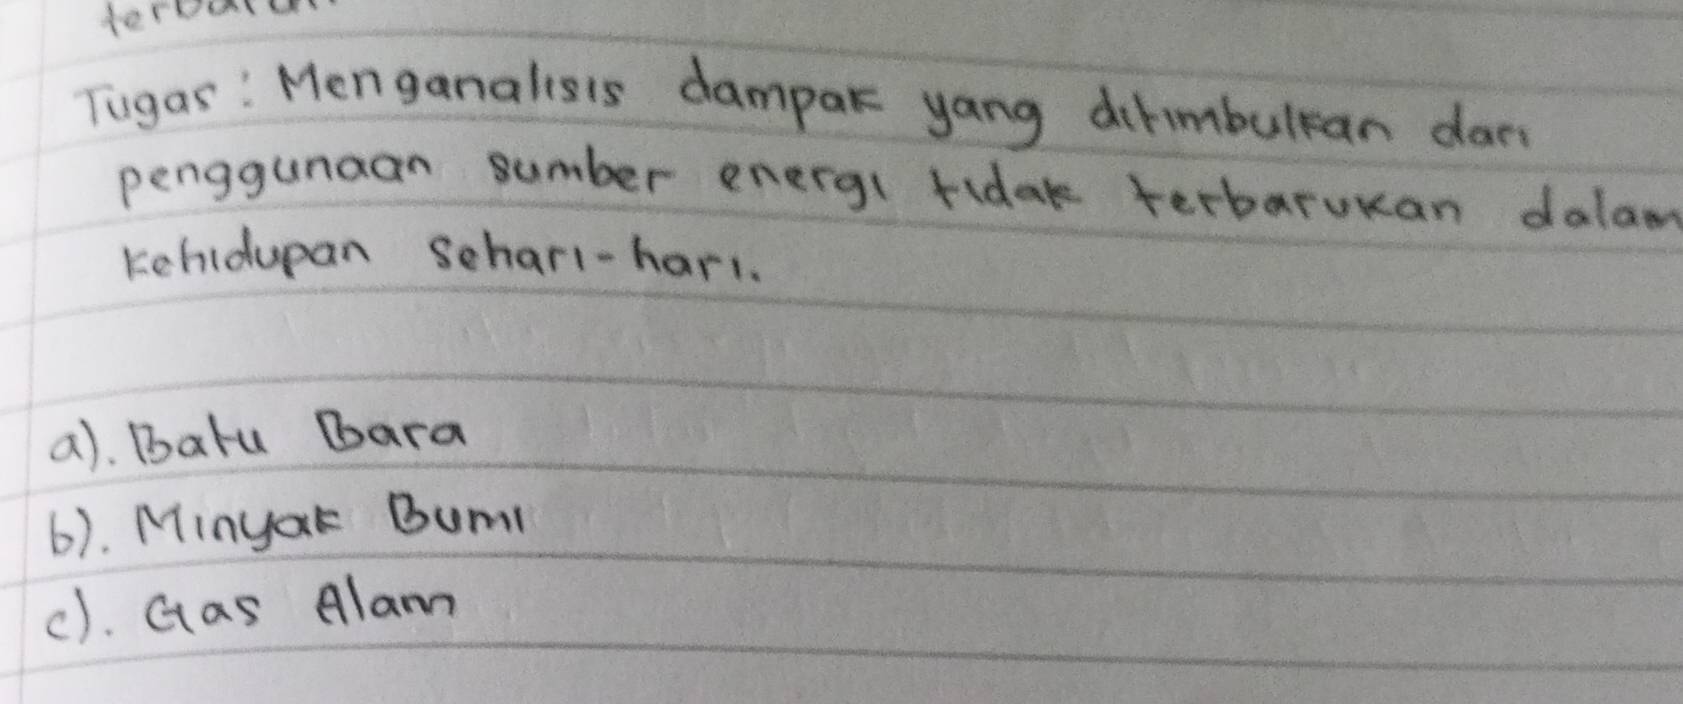 Tugas: Menganalisis dampak yang ditimbulkan dari
penggunaan sumber energi tidak terbarukan dalam
kehidupan sehari-hari.
a). Batu Bara
b). Minyak Bumi
c). Gas Alam